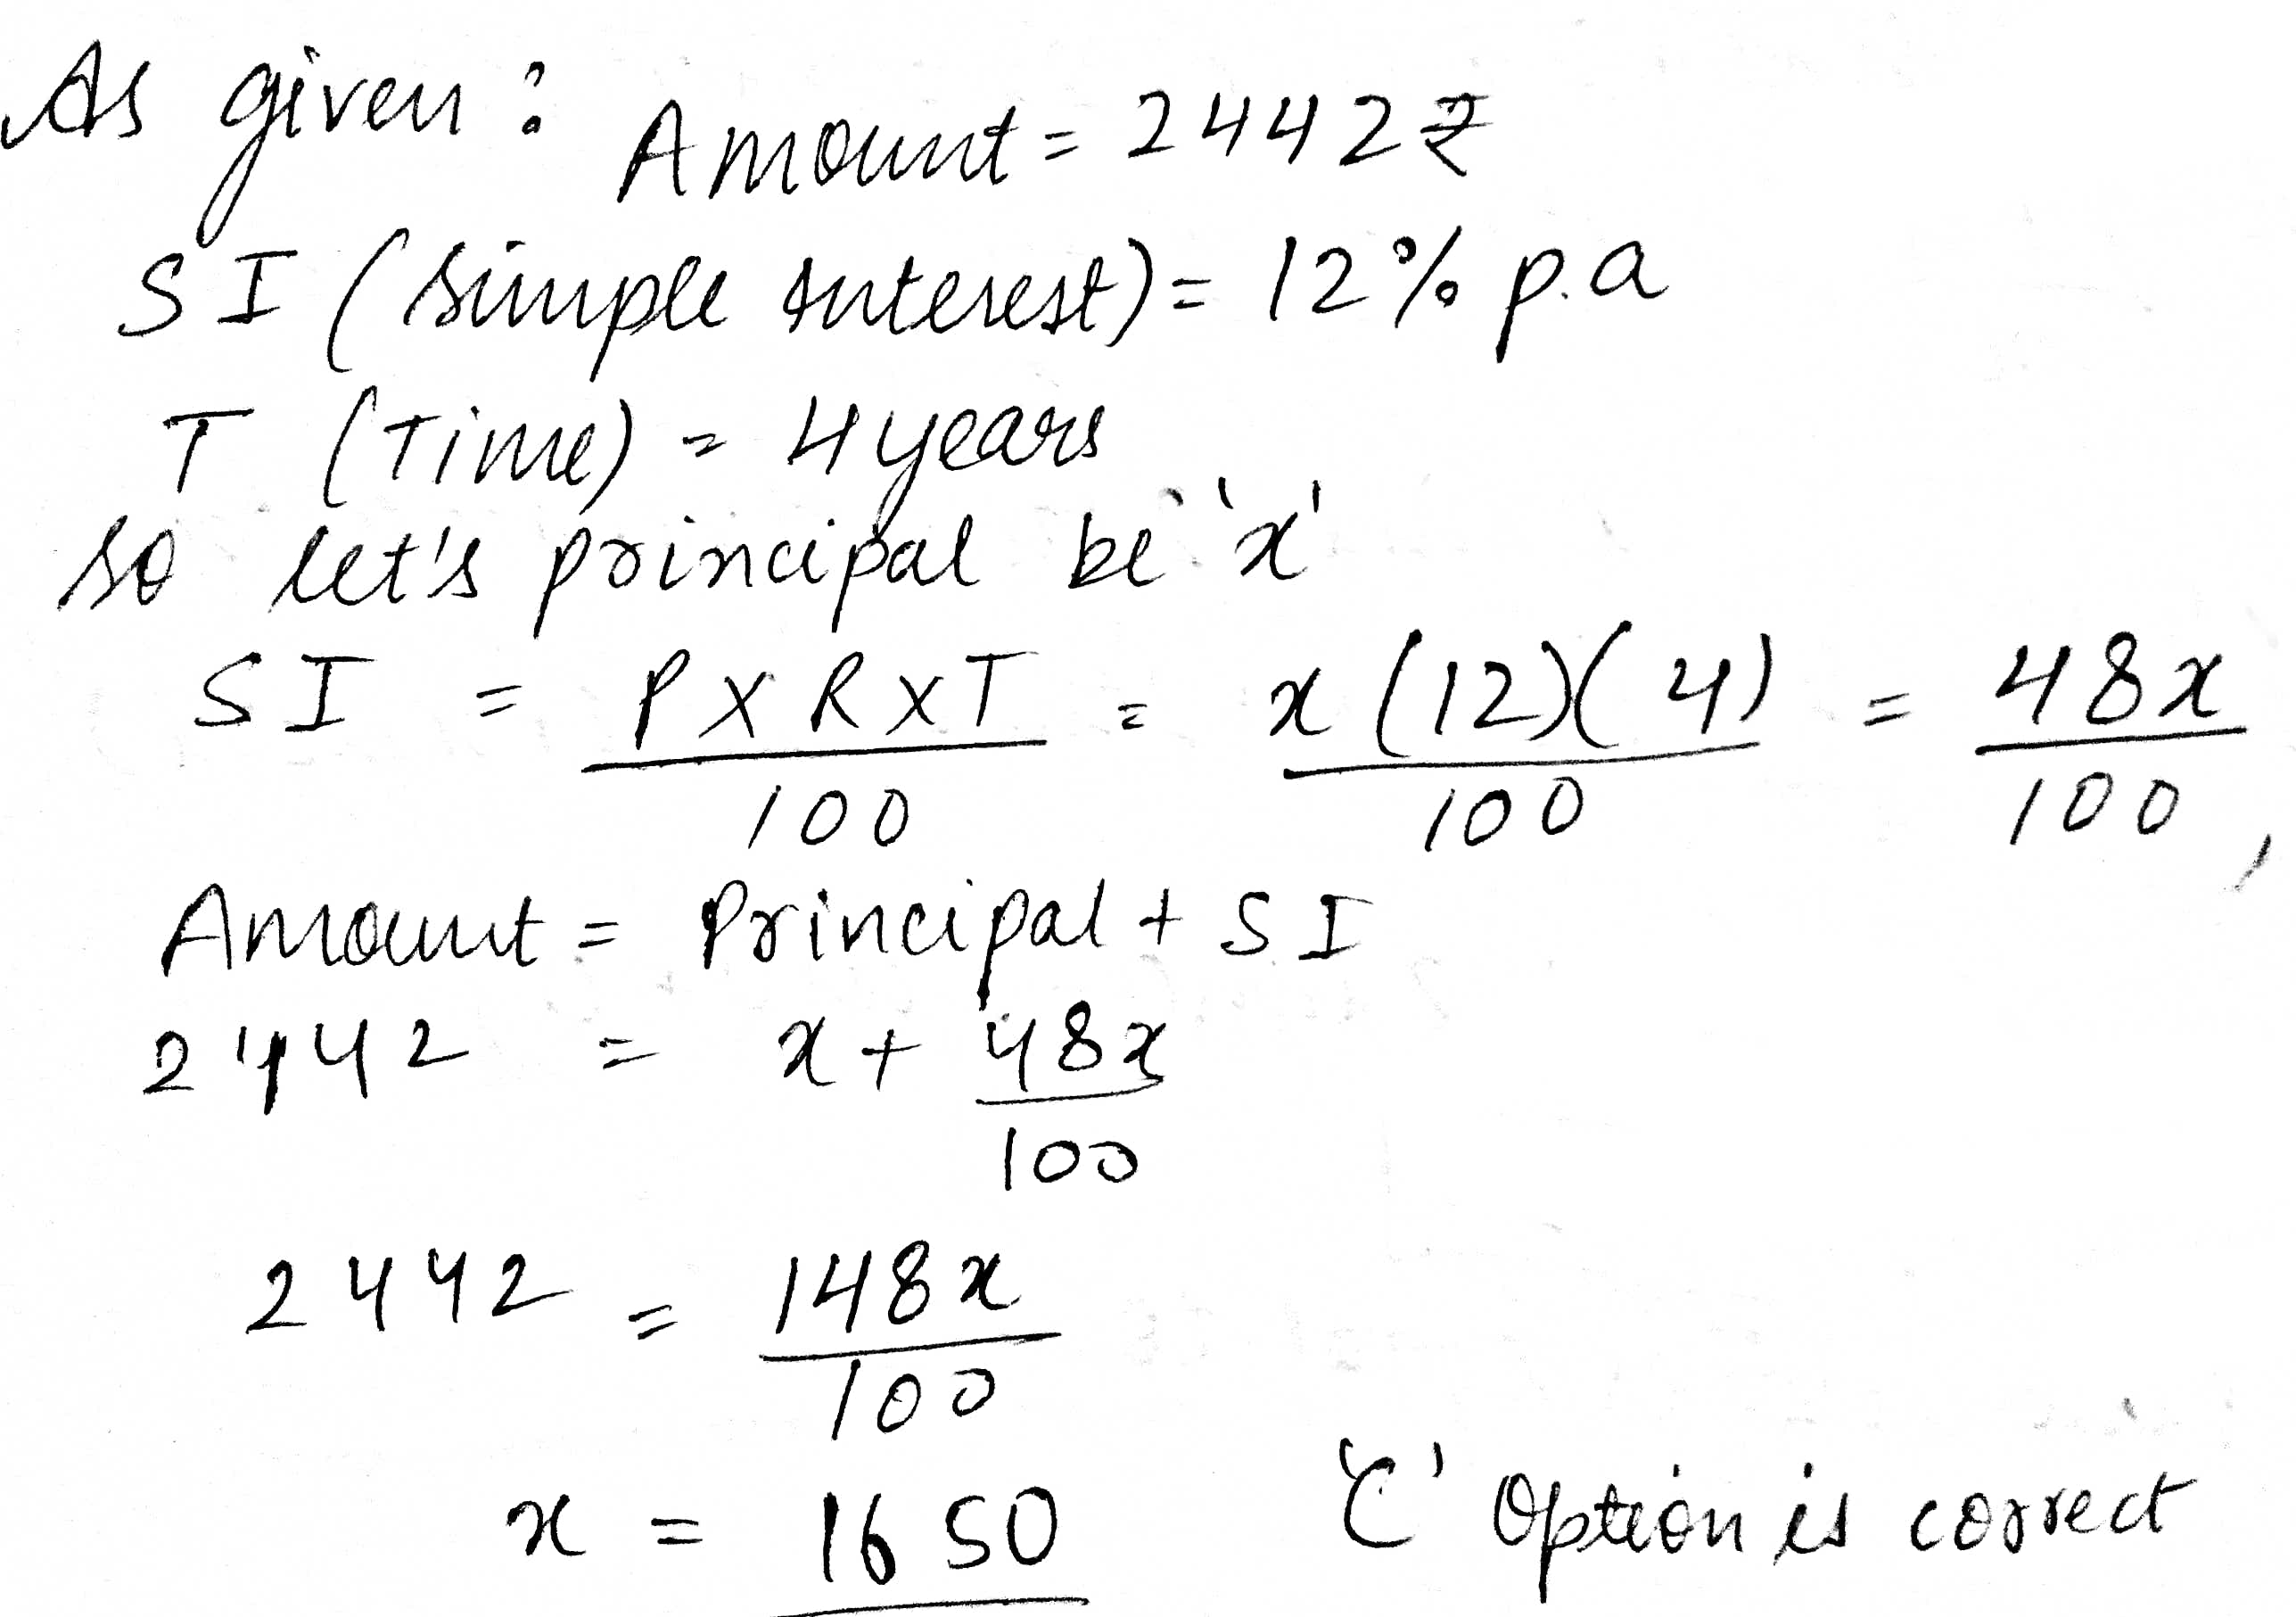 As given : Amount = 2442₹
SI (Simple Interest) = 12% p.a
T (Time) = 4years
so let's principal be 'x'
SI = P X R X T / 100 = x (12)(4) / 100 = 48x / 100,
Amount = Principal + SI
2442 = x + 48x / 100
2442 = 148x / 100
x = 1650 'C' Option is correct